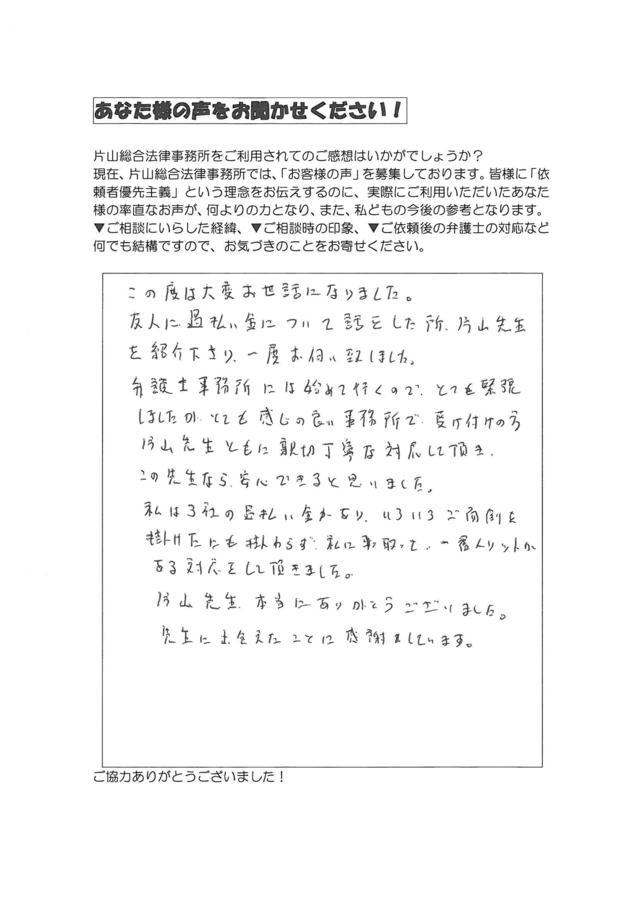 あなた様の声をお聞かせください！
片山総合法律事務所をご利用されてのご感想はいかがでしょうか？
現在、片山総合法律事務所では、「お客様の声」を募集しております。皆様に「依
頼者優先主義」という理念をお伝えするのに、実際にご利用いただいたあなた
様の率直なお声が、何よりの力となり、また、私どもの今後の参考となります。
▼ご相談にいらした経緯、▼ご相談時の印象、▼ご依頼後の弁護士の対応など
何でも結構ですので、お気づきのことをお寄せください。
この度は大変お世話になりました。
友人に過払い金について話をした所、片山先生
を紹介下さり、一度お伺い致しました。
弁護士事務所には始めて行くので、とても緊張
しましたが、とても感じの良い事務所で、受け付けの方
片山先生ともに親切丁寧な対応して頂き、
この先生なら、安心できると思いました。
私は3社の過払い金があり、いろいろご面倒を
掛けたにも掛わらず、私に取って、一番メリットが
ある対応をして頂きました。
片山先生、本当にありがとうございました。
先生に出会えたことに感謝をしています。
ご協力ありがとうございました！